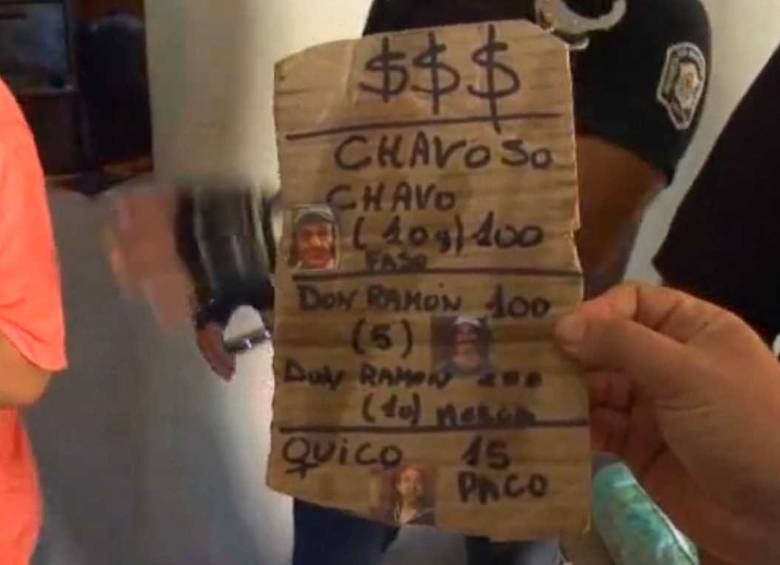 $$$
CHAVOSO
CHAVO
(10g) 100
FASO
DON RAMON 100
(5)
DON RAMON
(10) MERCA
QUICO 15
PACO